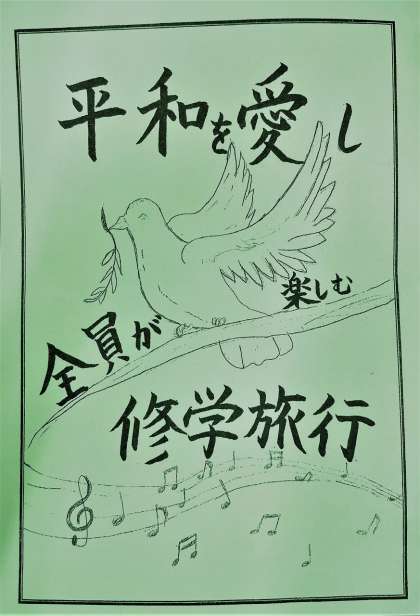 平和を愛し
全員が
楽しむ
修学旅行